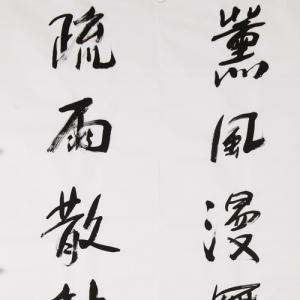 薰風漫
疏雨散